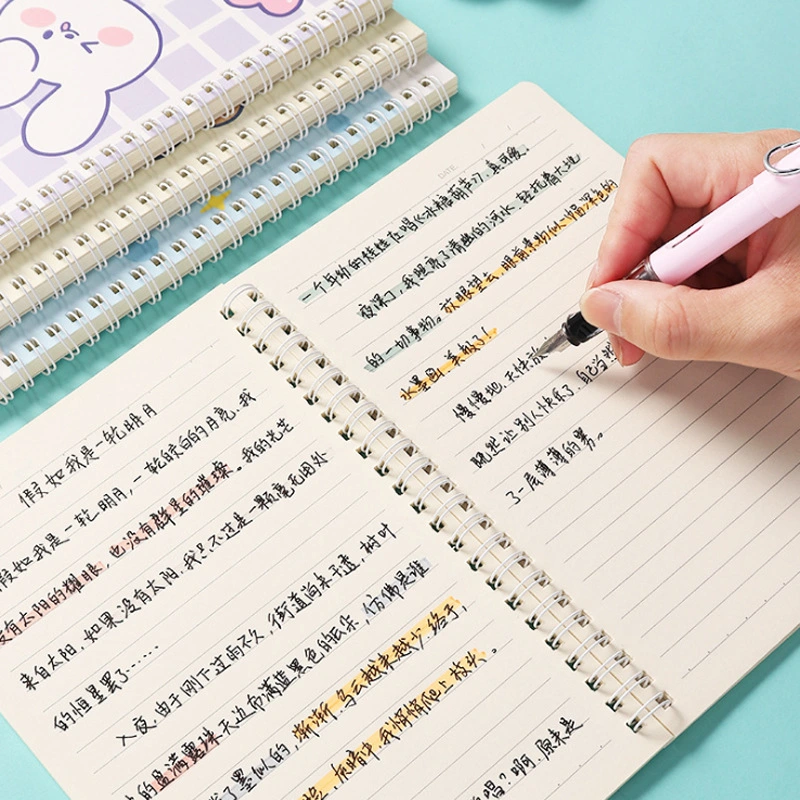 假如我是一轮明月
假如我是一轮明月,一轮皎白的月亮。我
没有太阳的耀眼,也没有群星的璀璨。我的光芒
来自太阳,如果没有太阳,我只不过是一颗毫无用处
的恒星罢了……
入夜,由于刚下过雨不久,街道尚未干透,树叶
的晶满露珠,天边布满蓝黑色的云朵,仿佛是谁
了墨似的,渐渐,乌云越来越少,终于,
后暗中,我悄悄爬上枝头。
唱?啊,原来是
DATE
一个年幼的娃娃在唱《冰糖葫芦》,真可爱。
夜深了,我照亮了清幽的河水,轻抚着大地
的一切事物。放眼望去,眼前景物似一幅黑色的
水墨画,美极了!
慢慢地,天快放
既然让别人快乐了,自己当然
了一层薄薄的雾。